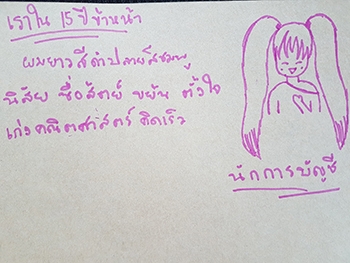 เราใน 15 ปีข้างหน้า
ผมยาวสีดำปลายสีชมพู
นิสัย ซื่อสัตย์ ขยัน ตั้งใจ
เก่งคณิตศาสตร์ คิดเร็ว
นักการบัญชี